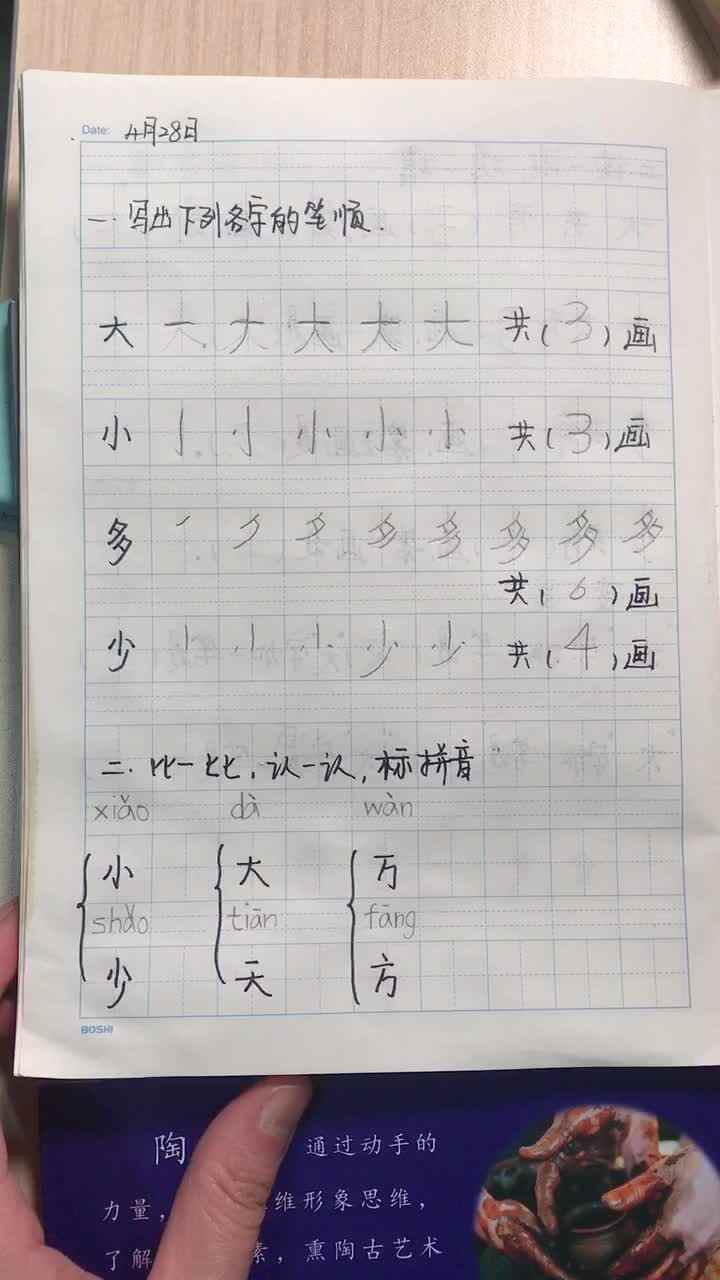 Date: 4月28日
一.写出下列各字的笔顺.
大 一 ナ 大 大 大 共(3)画
小 亅 小 小 小 共(3)画
多 ノ ク 夕 多 多 多 多 共(6)画
少 小 少 少 共(4)画
二.比一比,认一认,标拼音
xiǎo dà wàn
小 大 万
shǎo tiān fāng
少 天 方
BOSHI
陶 通过动手的
力量, 维形象思维,
了解 素,熏陶古艺术